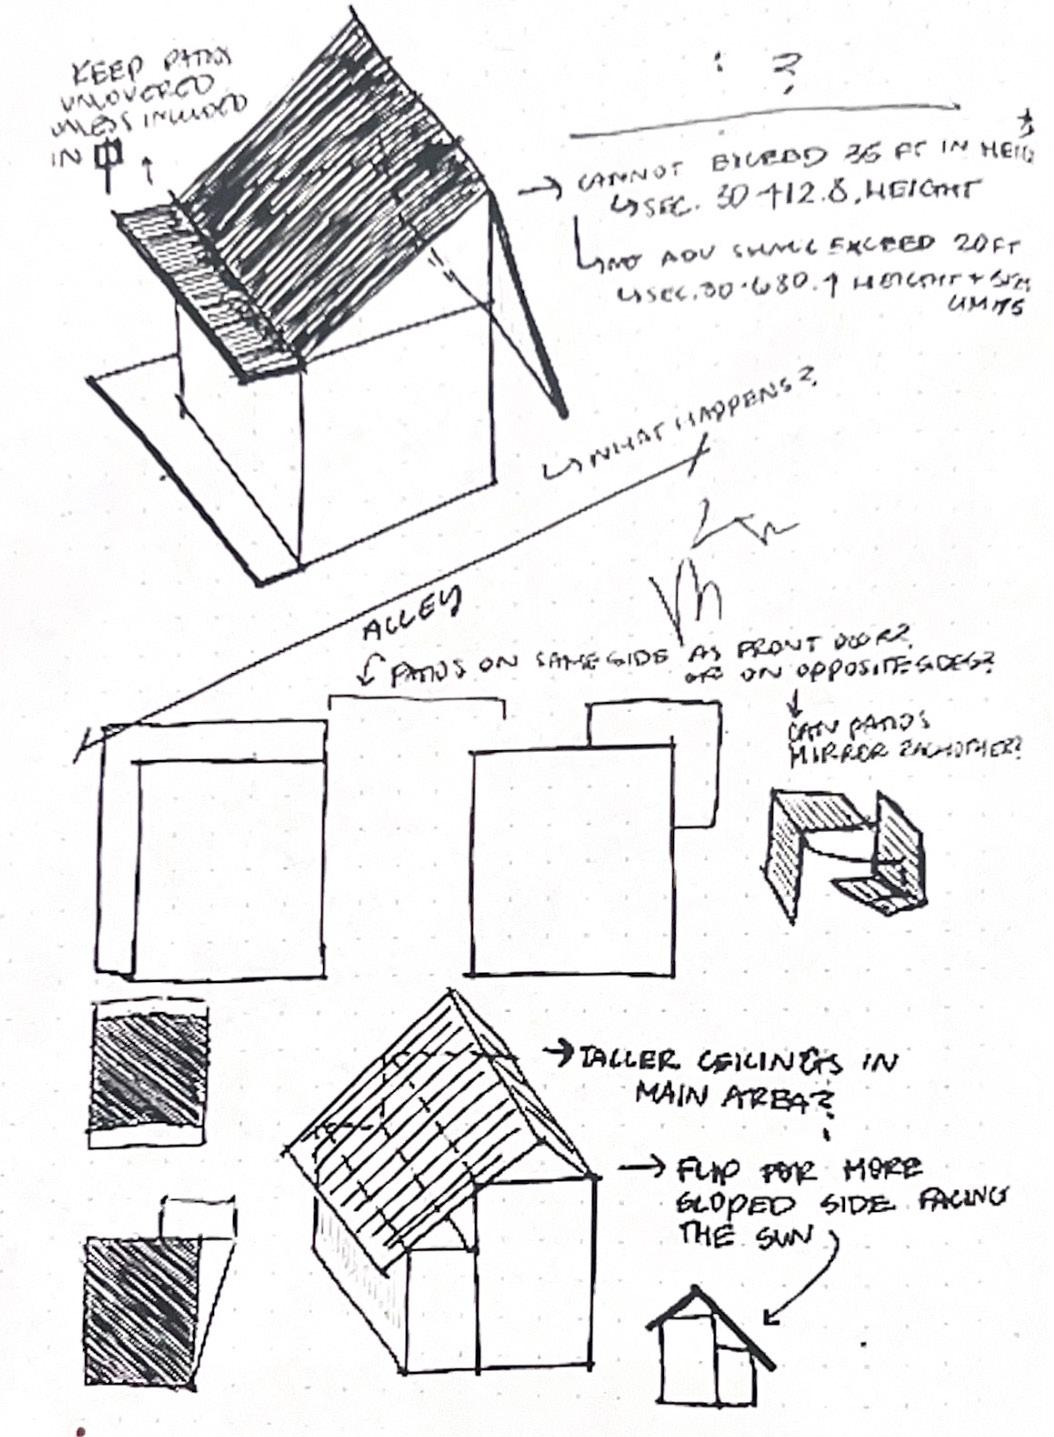 KEEP PATIOS
UNCOVERED
UNLESS INCLUDED
IN
: ?
→ CANNOT EXCEED 35 FT IN HEIG
↳ SEC. 30-412.8. HEIGHT
↳ NO ADU SHALL EXCEED 20 FT
↳ SEC. 30-680.9 HEIGHT + SIZE
LIMITS
↳ WHAT HAPPENS?
ALLEY
PATIOS ON SAME SIDE AS FRONT DOOR?
OR ON OPPOSITE SIDES?
CAN PATIOS
MIRROR EACHOTHER?
→ TALLER CEILINGS IN
MAIN AREA?
→ FLIP FOR MORE
SLOPED SIDE FACING
THE SUN